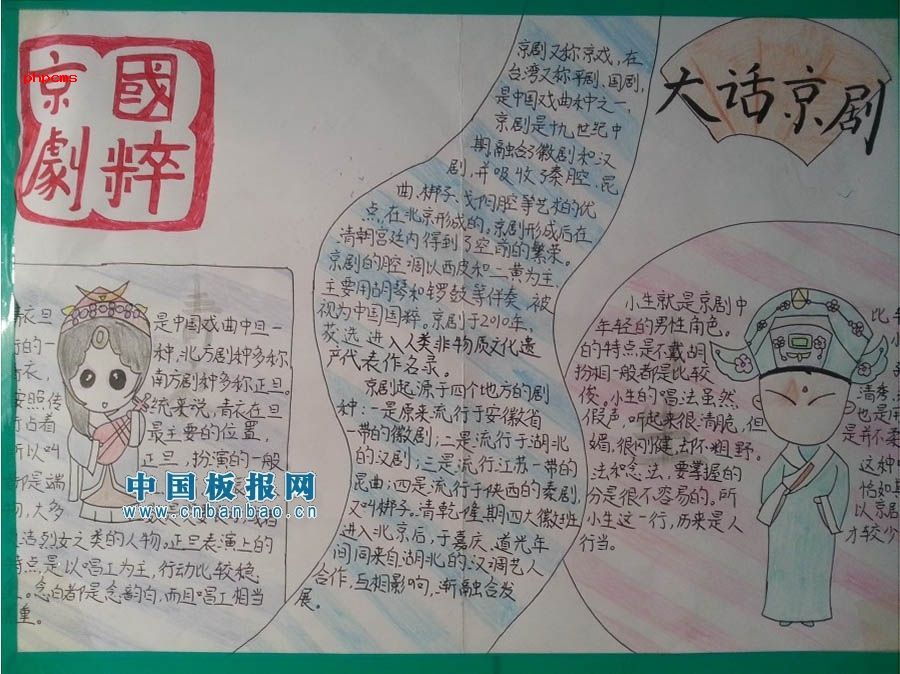 phpcms
國粹
京劇
大话京剧
京剧又称京戏，在
台湾又称平剧、国剧，
是中国戏曲种之一，
京剧是十九世纪中
期融合了徽剧和汉
剧，并吸收了秦腔、昆
曲、梆子、弋阳腔等艺术的优
点，在北京形成的。京剧形成后在
清朝宫廷内得到了空前的繁荣。
京剧的腔调以西皮和二黄为主，
主要用胡琴和锣鼓等伴奏，被
视为中国国粹。京剧于2010年，
获选进入人类非物质文化遗
产代表作名录。
京剧起源于四个地方的剧
种：一是原来流行于安徽省
一带的徽剧；二是流行于湖北
的汉剧；三是流行江苏一带的
昆曲；四是流行于陕西的秦剧，
又叫梆子。清乾隆期四大徽班
进入北京后，于嘉庆、道光年
间同来自湖北的汉调艺人
合作，互相影响，渐融合发
展。
青衣旦 是中国戏曲中旦一
行的一 种，北方剧种多称
青衣， 南方剧种多称正旦。
按照传 统来说，青衣在旦
行占着 最主要的位置，
所以叫 正旦，扮演的一般
都是端
物，大多
是贞洁烈女之类的人物。正旦表演上的
特点是以唱工为主，行动比较稳
。念白都是念韵白，而且唱工相当
重。
中国板报网
www.cnbanbao.cn
小生就是京剧中
年轻的男性角色。
的特点是不戴胡
扮相一般都是比较
俊。小生的唱法虽然
假声，听起来很清脆，但
媚，很刚健，却不粗野。
法和念法，要掌握的
分是很不容易的。所
小生这一行，历来是人
行当。
比
清秀
也是用
是并不柔
这种
恰如其
以京剧
才较少